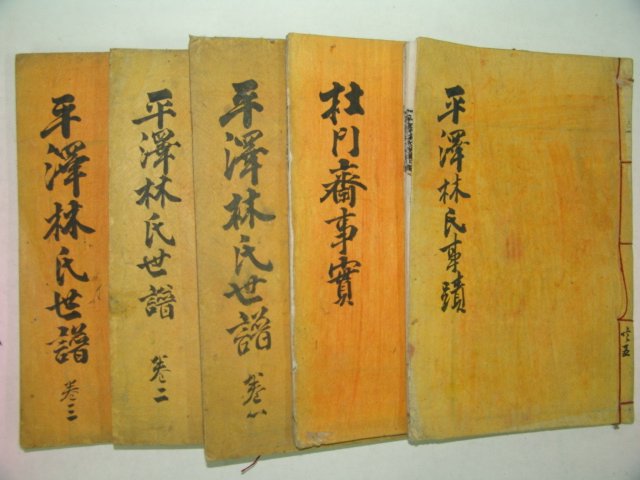 平澤林氏事蹟
共五
杜門齋事實
平澤林氏世譜
卷一
平澤林氏世譜
卷二
平澤林氏世譜
卷三